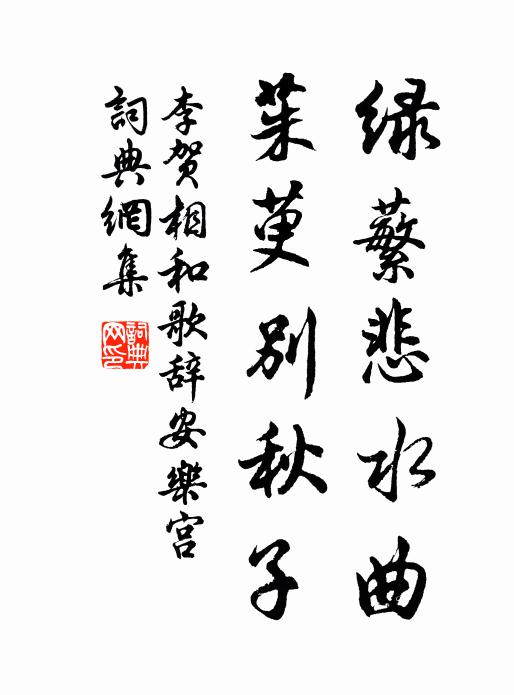 绿蘩悲水曲
茱萸别秋子
李贺相和歌辞安樂宫
詞典網集
詞典
网印